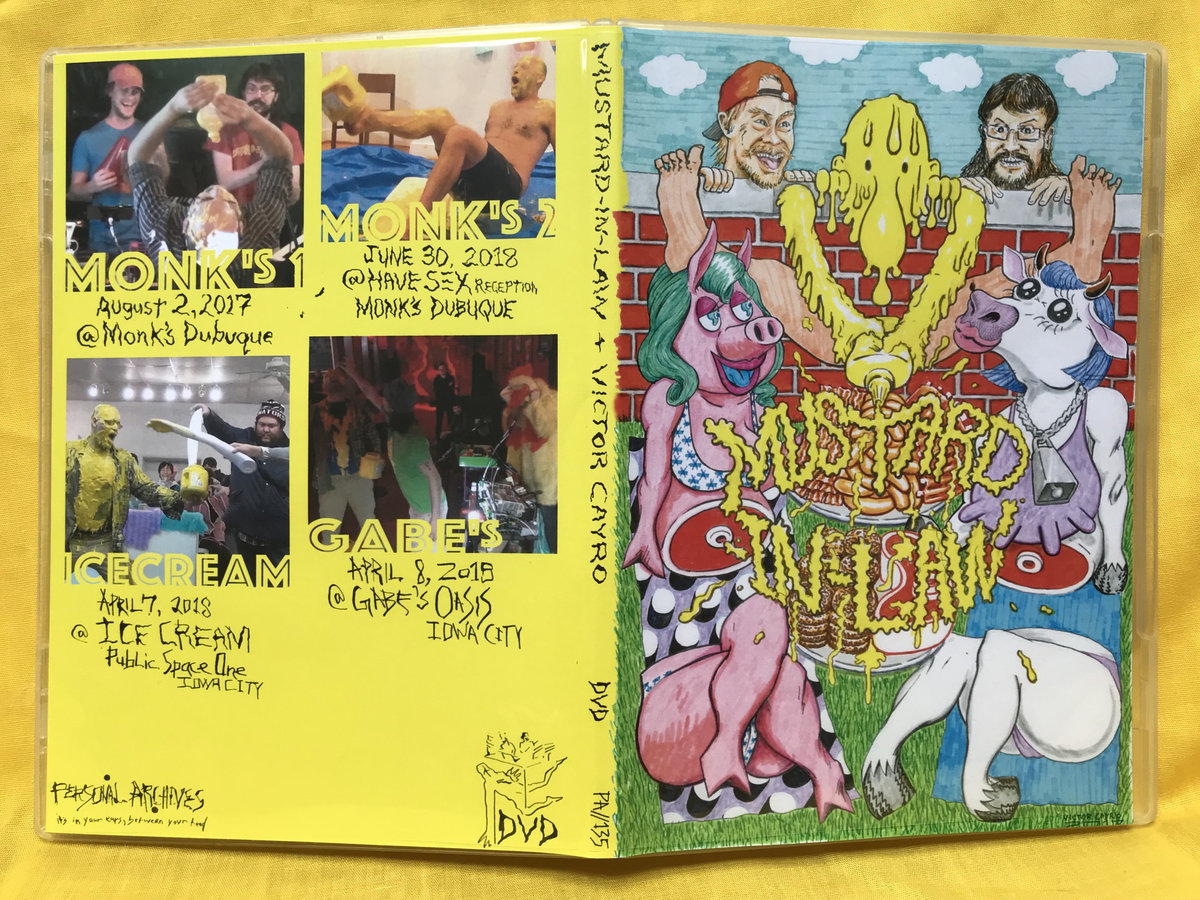 MONK'S 1
August 2, 2017
@ Monk's Dubuque
MONK'S 2
JUNE 30, 2018
@ HAVE SEX RECEPTION
MONK'S DUBUQUE
ICECREAM
APRIL 7, 2018
@ ICE CREAM
Public Space One
IOWA CITY
GABE'S
APRIL 8, 2018
@ GABE'S OASIS
IOWA CITY
PERSONAL ARCHIVES
its in your ears, between your head
DVD
MUSTARD-IN-LAW + VICTOR CAYRO DVD PAV/135
MUSTARD
IN-LAW
VICTOR CAYRO